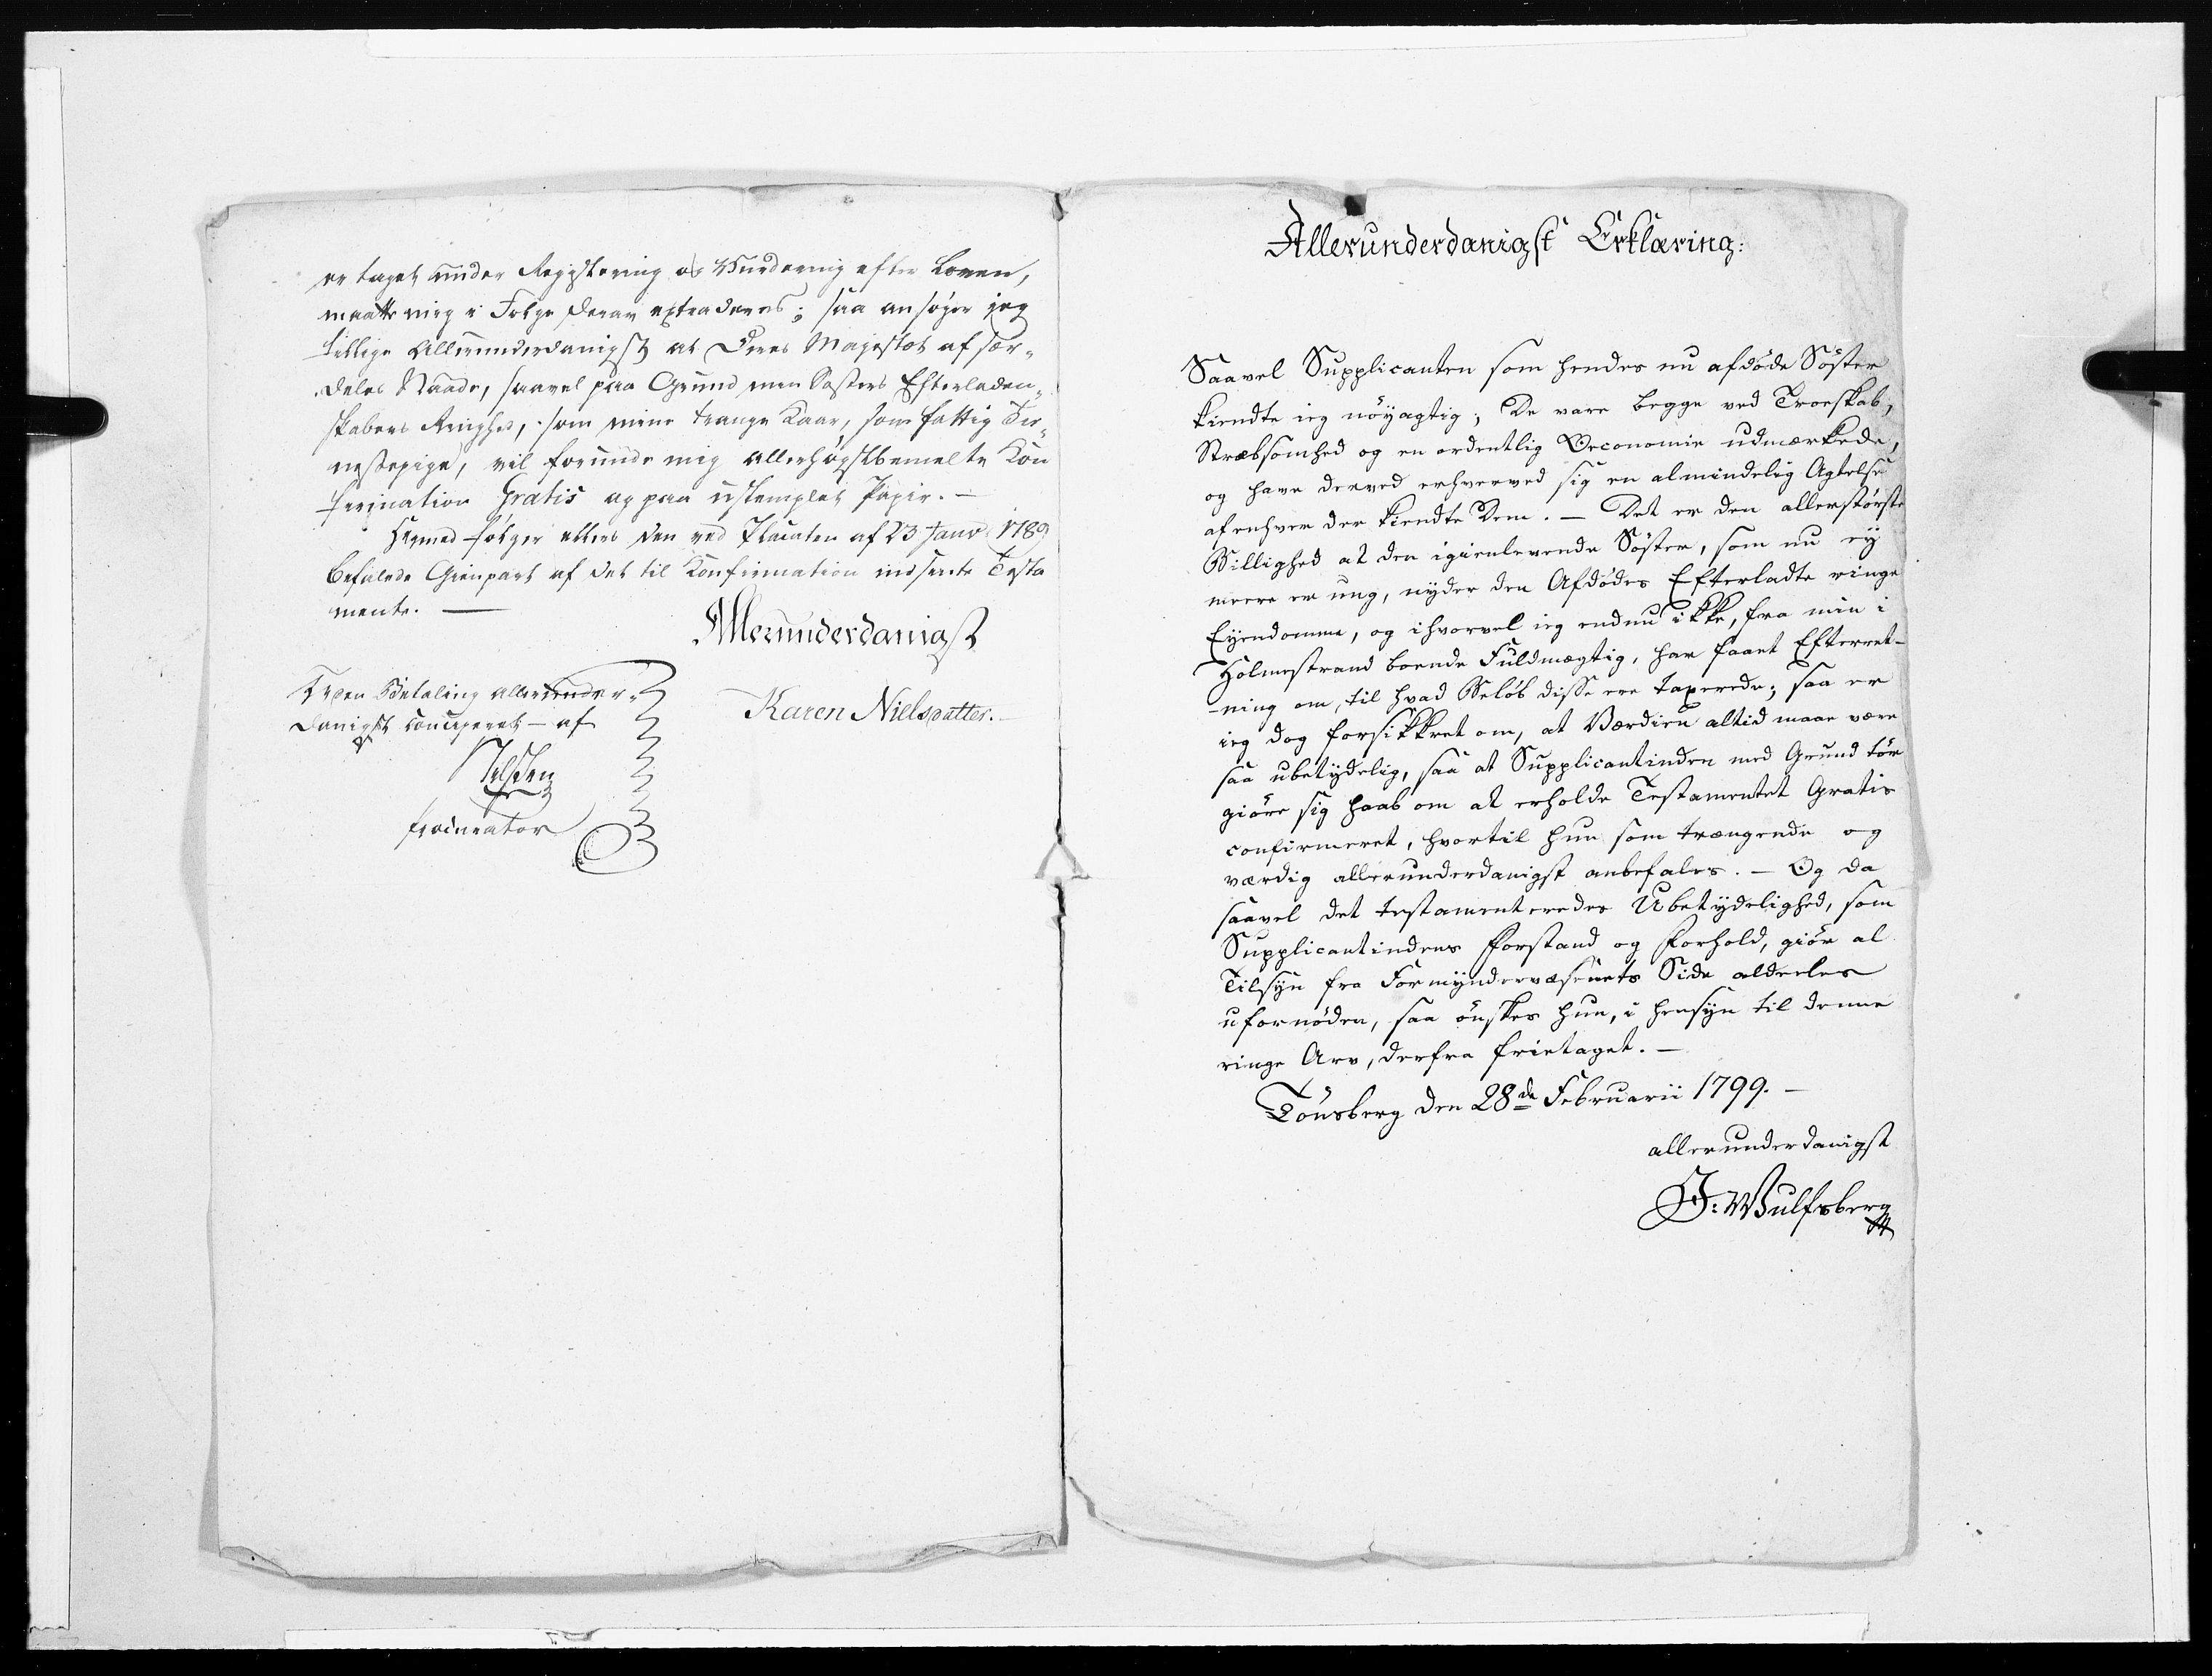 er taget under Registering og Vurdering efter Loven,
maatte mig i Følge deraf extraderes; saa ansøger jeg
tillige allerunderdanigst at Deres Majestæt af sær-
deles Naade, saavel paa Grund min Søsters Efterladen-
skabers Ringhed, som mine trange Kaar, som fattig Tie-
nestepige, vil forunde mig allerhøgstbemelte Kon
firmation Gratis og paa ustemplet Papir. —
Hermed følger ellers den ved Placaten af 23 Janv: 1789
befalede Gienpart af det til Konfirmation indsente Testa
mente. —
Allerunderdanigst
Karen Nielsdatter.
Uden Betaling allerunder-
danigst conciperet — af
Nielsen
procurator
Allerunderdanigst Erklæring:
Saavel Supplicanten som hendes nu afdøde Søster
kiendte ieg nøyagtig; De vare begge ved Troeskab,
Stræbsomhed og en ordentlig Oeconomie udmærkede,
og have derved erhvervet sig en almindelig Agtelse
af enhver der kiendte Dem. — Det er den allerstørste
Billighed at den igienlevende Søster, som nu ey
meere er ung, nyder den Afdødes Efterladte ringe
Eyendomme, og ihvorvel ieg endnu ikke, fra min i
Holmestrand boende Fuldmægtig, har faaet Efterret-
-ning om, til hvad Beløb disse ere taxerede; saa er
ieg dog forsikkret om, at Værdien altid maae være
saa ubetydelig, saa at Supplicantinden med Grund tør
giøre sig Haab om at erholde Testamentet Gratis
confirmeret, hvortil hun som trængende og
værdig allerunderdanigst anbefales. — Og da
saavel det testamenteredes Ubetydelighed, som
Supplicantindens Forstand og Forhold, giør al
Tilsyn fra Formyndervæsenets Side aldeeles
ufornøden, saa ønskes hun, i Hensyn til denne
ringe Arv, derfra frietaget. —
Tønsberg den 28de Februarii 1799. —
allerunderdanigst
J: Wulfsberg